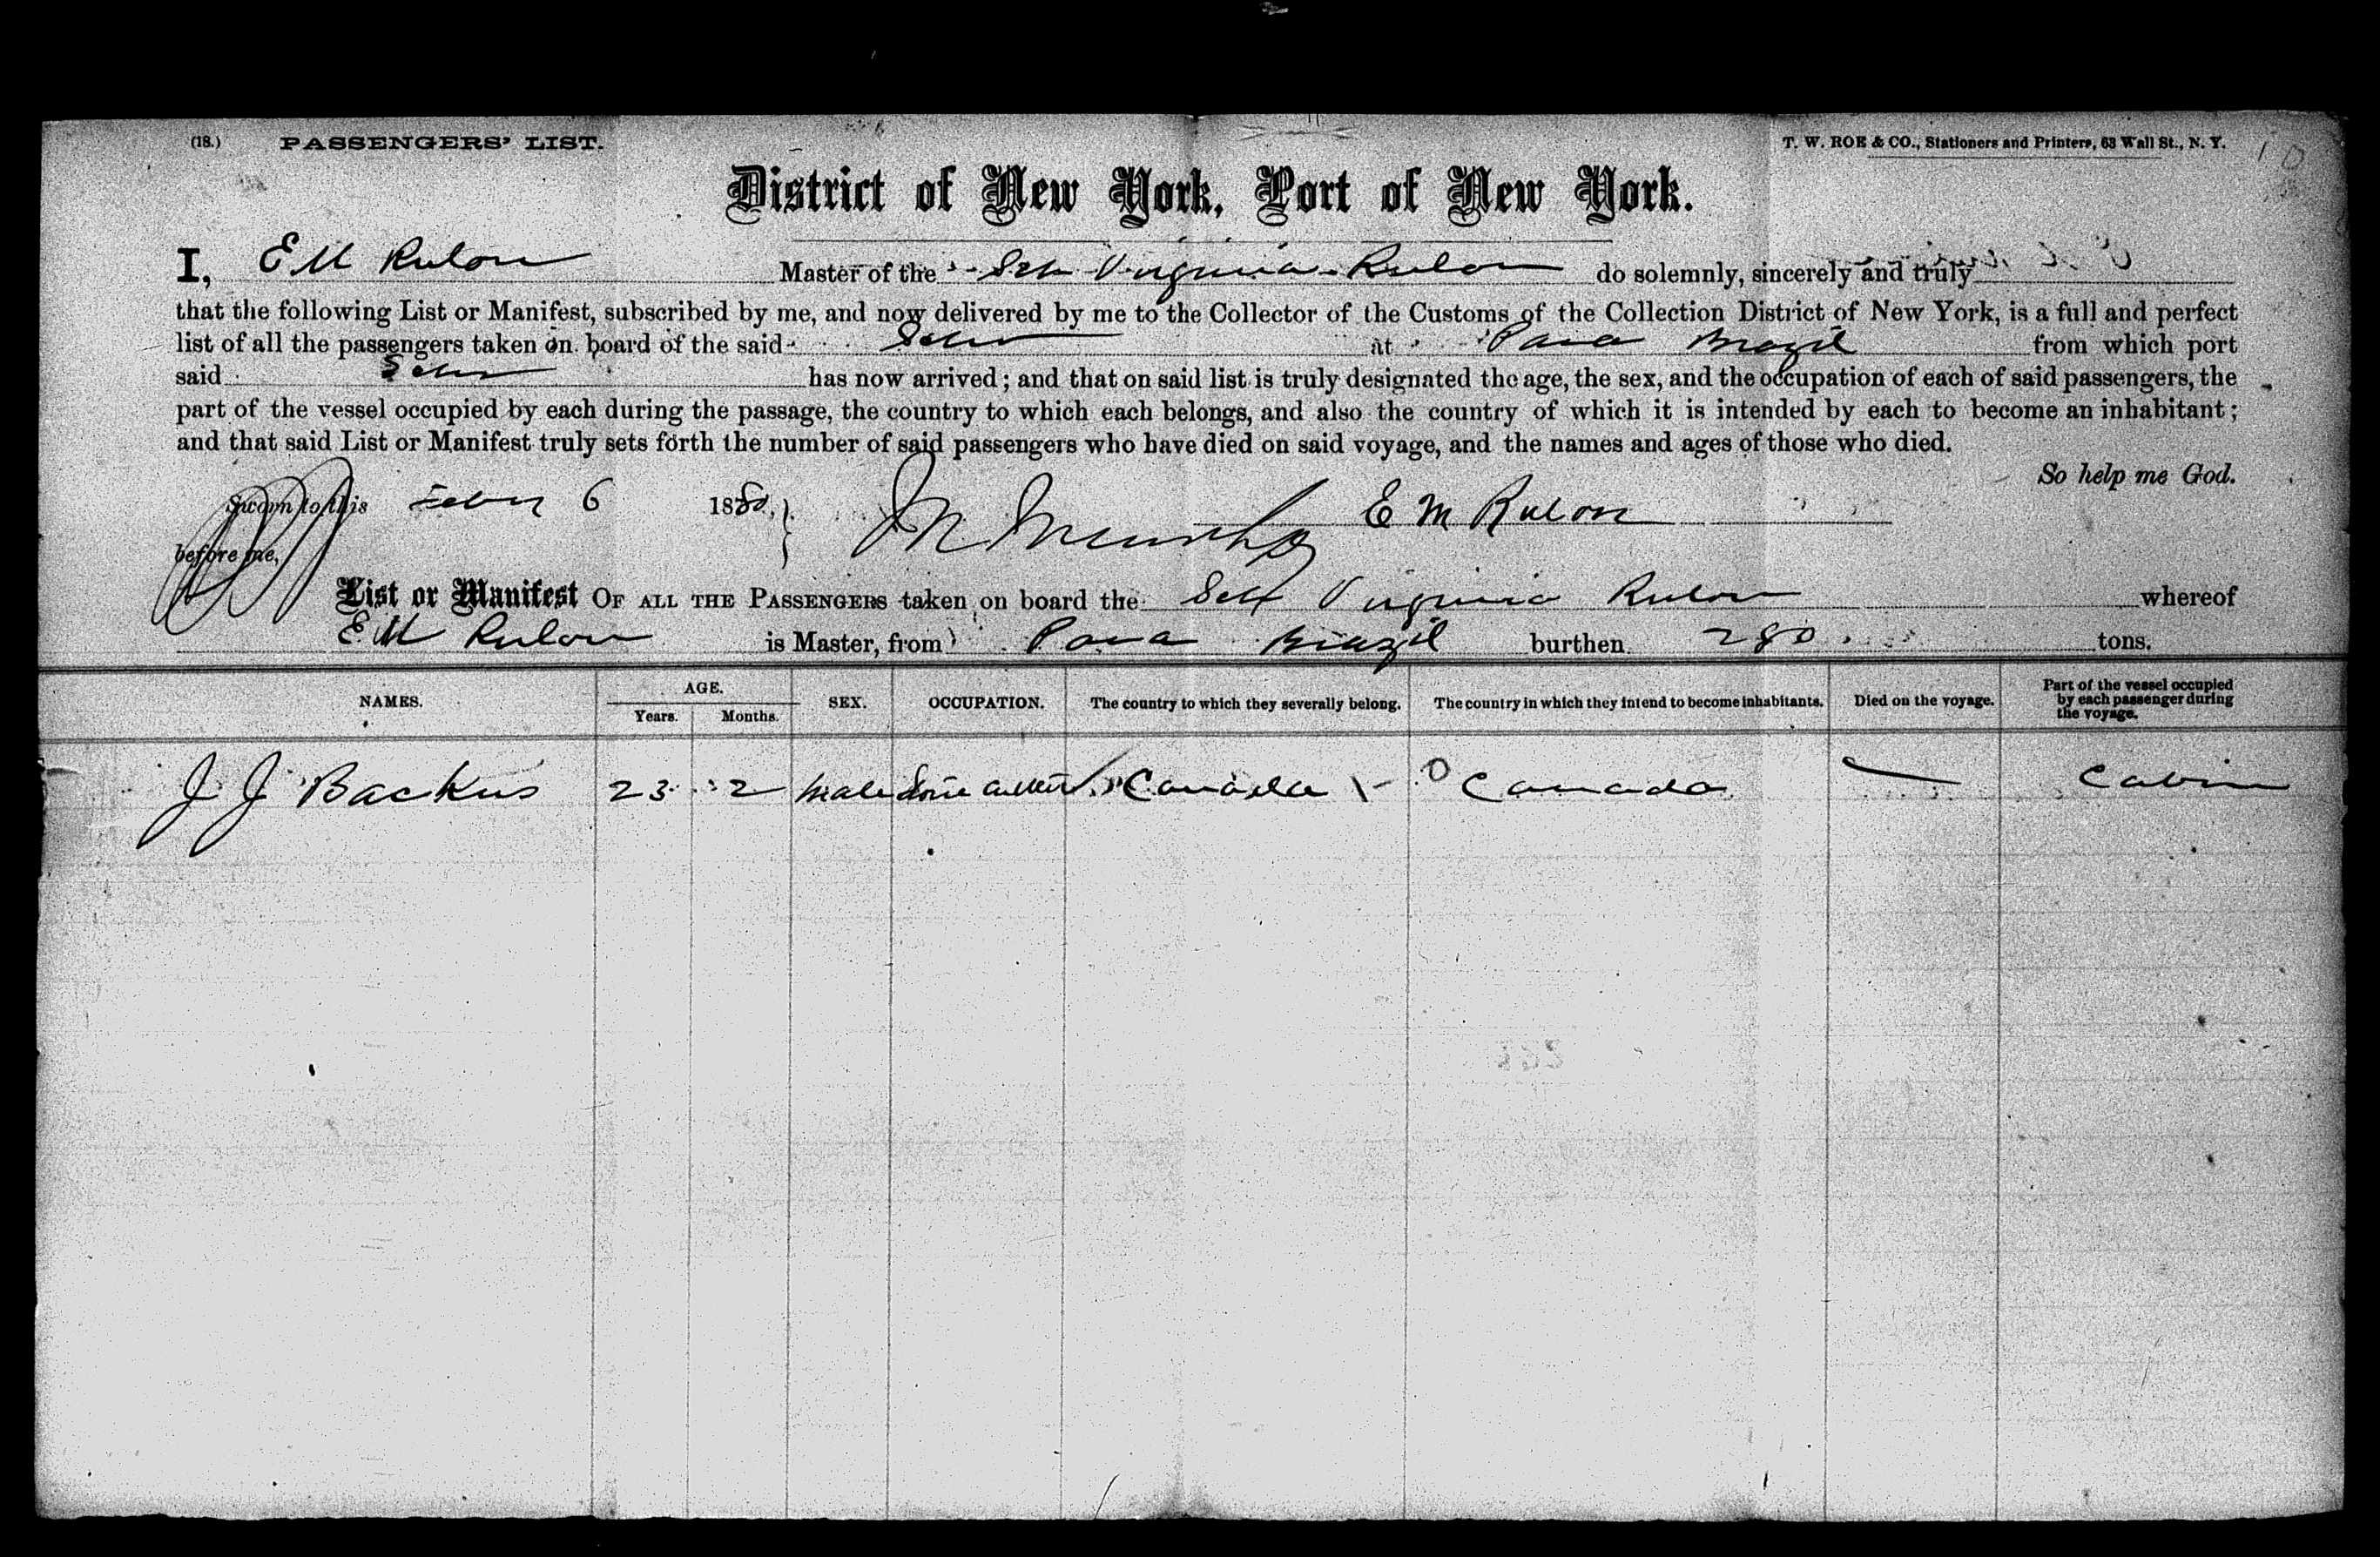 (18.) PASSENGERS' LIST. T. W. ROE & CO., Stationers and Printers, 63 Wall St., N. Y. 10
District of New York, Port of New York.
I, E M Rulon Master of the Sch Virginia Rulon do solemnly, sincerely and truly
that the following List or Manifest, subscribed by me, and now delivered by me to the Collector of the Customs of the Collection District of New York, is a full and perfect
list of all the passengers taken on board of the said Schr at Para Brazil from which port
said Schr has now arrived; and that on said list is truly designated the age, the sex, and the occupation of each of said passengers, the
part of the vessel occupied by each during the passage, the country to which each belongs, and also the country of which it is intended by each to become an inhabitant;
and that said List or Manifest truly sets forth the number of said passengers who have died on said voyage, and the names and ages of those who died.
So help me God.
Sworn to this Feby 6 1880, E M Rulon
before me,
List or Manifest OF ALL THE PASSENGERS taken on board the Sch Virginia Rulon whereof
E M Rulon is Master, from Para Brazil burthen 280 tons.
NAMES. AGE. Years. Months. SEX. OCCUPATION. The country to which they severally belong. The country in which they intend to become inhabitants. Died on the voyage. Part of the vessel occupied by each passenger during the voyage.
J J Backus 23 2 Male Canada Canada Cabin